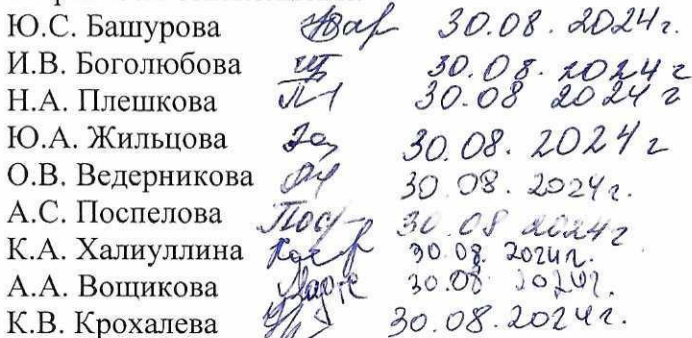 Ю.С. Башурова 30.08.2024г.
И.В. Боголюбова 30.08.2024г
Н.А. Плешкова 30.08 2024г
Ю.А. Жильцова 30.08.2024г
О.В. Ведерникова 30.08.2024г.
А.С. Поспелова 30.08 2024г
К.А. Халиуллина 30.08.2024г.
А.А. Вощикова 30.08 2024г.
К.В. Крохалева 30.08.2024г.